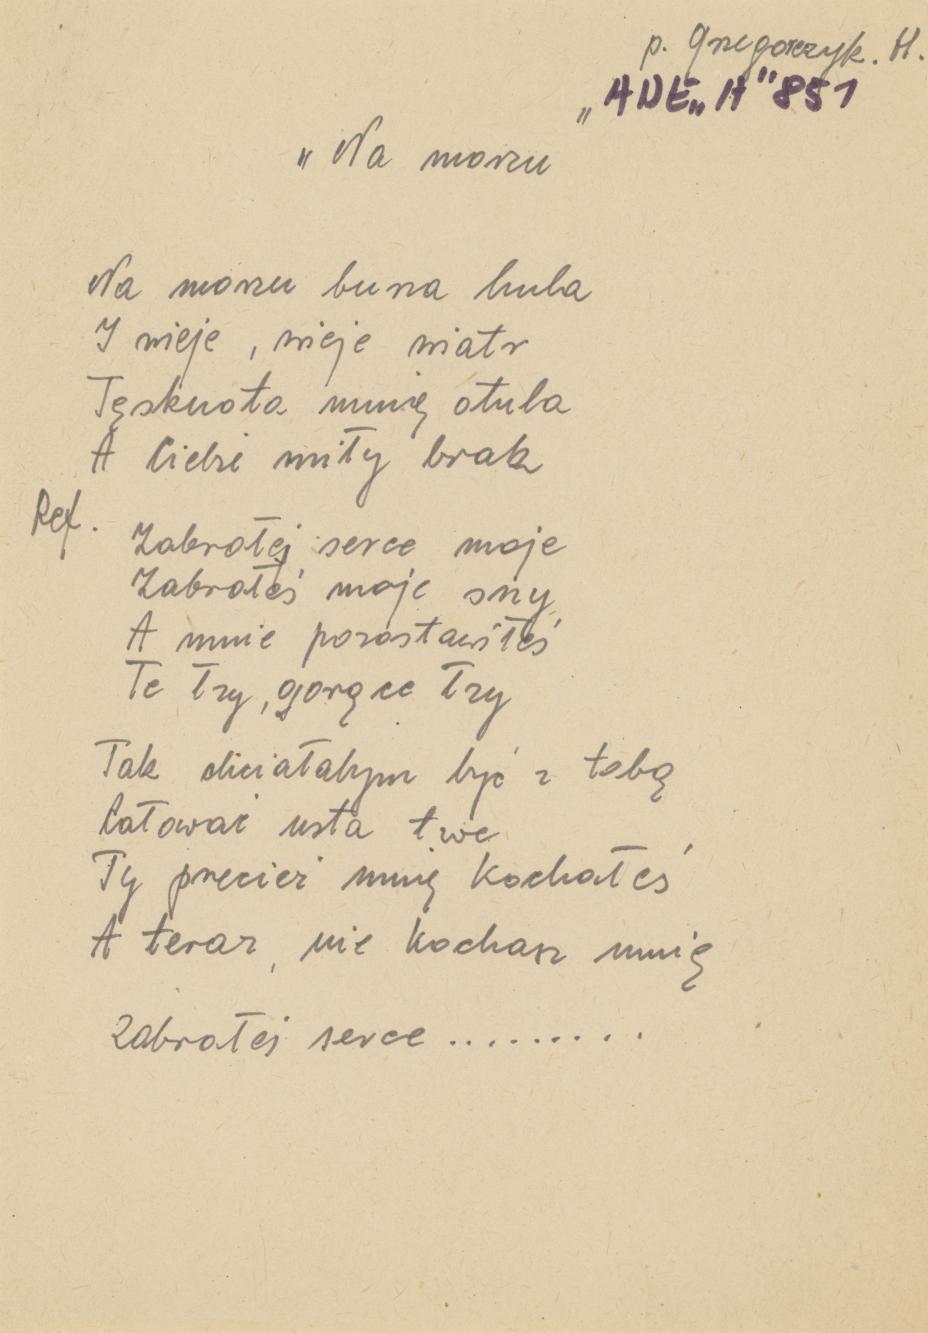 p. Grzegorczyk. H.
„ANE„H"851
„Na morzu
Na morzu burza hula
I wieje, wieje wiatr
Tęsknota mnię otula
A Ciebie miły brak
Ref.
Zabrałeś serce moje
Zabrałeś moje sny
A mnie pozostawiłeś
Te łzy, gorące łzy
Tak chciałabym być z tobą
Całować usta twe
Ty przecież mnię kochałeś
A teraz, nie kochasz mnię
Zabrałeś serce .........